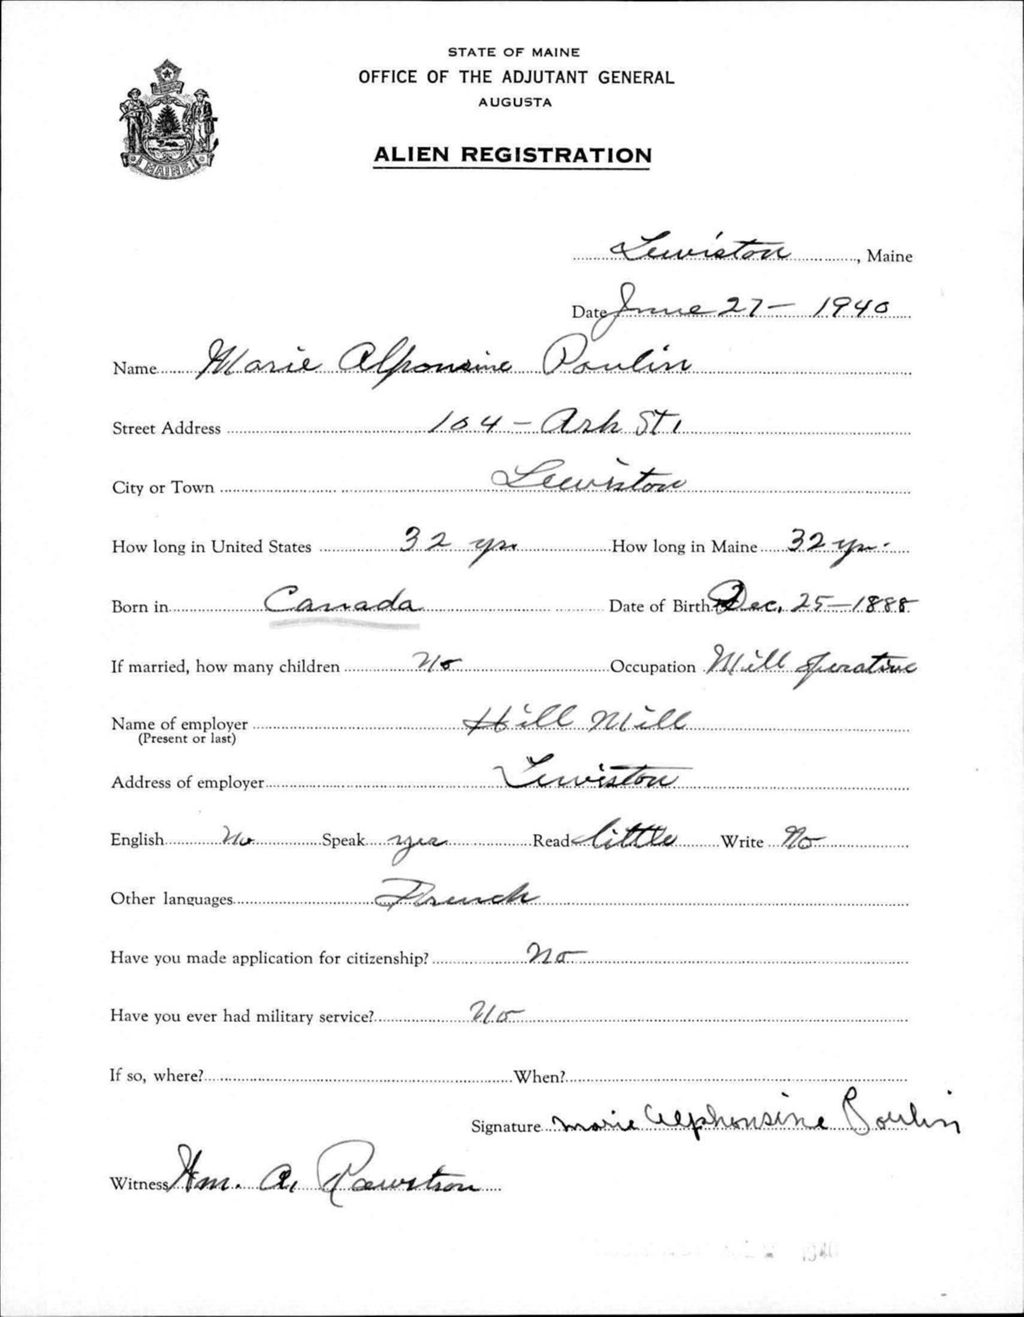 STATE OF MAINE
OFFICE OF THE ADJUTANT GENERAL
AUGUSTA
ALIEN REGISTRATION
MAINE
Lewiston, Maine
Date June 27 - 1940
Name Marie Alponsine Poulin
Street Address 104 - Ash St.
City or Town Lewiston
How long in United States 32 yrs. How long in Maine 32 yrs.
Born in Canada Date of Birth Dec. 25 - 1888
If married, how many children No Occupation Mill operative
Name of employer Hill Mill
(Present or last)
Address of employer Lewiston
English No Speak yes Read little Write No
Other languages French
Have you made application for citizenship? No
Have you ever had military service? No
If so, where? When?
Signature Marie Alphonsine Poulin
Witness Wm. A. Rawstron